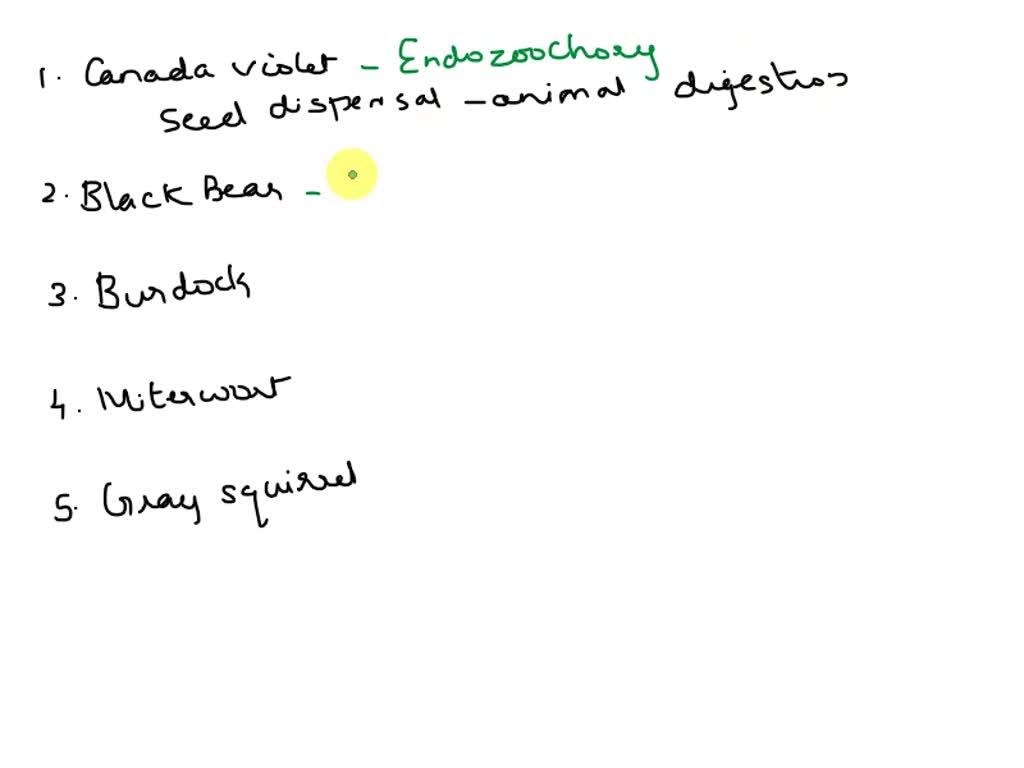 1. Canada violet - Endozoochory
Seed dispersal - animal digestion
2. Black Bear -
3. Burdock
4. Miterwort
5. Gray squirrel